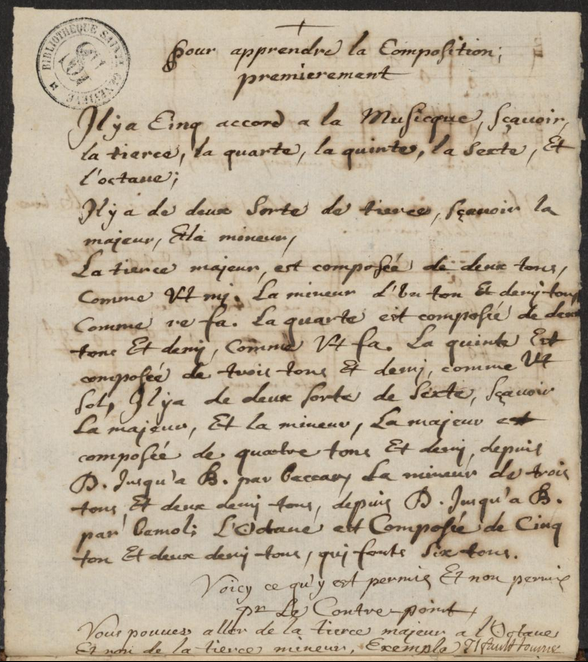 BIBLIOTHEQUE SAINTE GENEVIEVE
pour apprendre la Composition;
premierement
Il y a Cinq accord a la Musicque, sçavoir,
la tierce, la quarte, la quinte, la Sexte, Et
l'octaue;
Il y a de deux sorte de tierce, sçavoir la
majeur, Et la mineur,
La tierce majeur, est composée de deux tons,
Comme Vt mj. La mineur d'vn ton Et demj tons
Comme re fa. La quarte est composée de deux
tons Et demj, Comme Vt fa. La quinte Est
composée de trois tons Et demj, comme Vt
Sol, Il y a de deux sorte de Sexte, sçavoir
La majeur, Et la mineur, La majeur est
composée de quatre tons Et demj, depuis
D. Jusqu'a B. par beccary La mineur de trois
tons Et deux demj tons, depuis D. Jusqu'a B.
par bemol; L'Octaue est Composée de Cinq
ton Et deux demj tons, qui fonts Six tons.
Voicy ce qu'y est permis Et non permis
pr Le Contre point
Vous pouues aller de la tierce majeur a l'Octaue
Et non de la tierce mineur, Exemple Il fault tourner